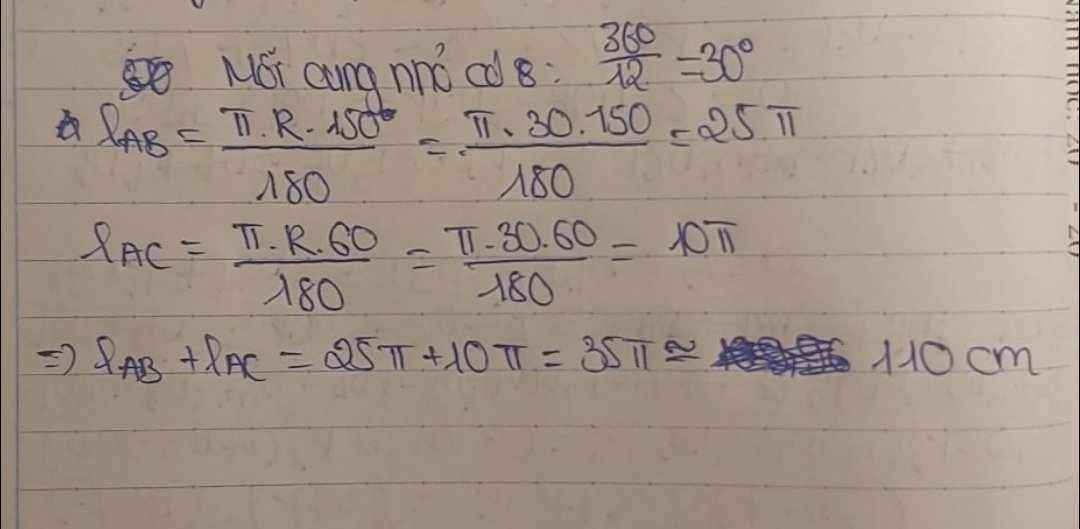 Mỗi cung nhỏ có 8: 360/12 = 30°
l_AB = π.R.150°/180 = π.30.150/180 = 25π
l_AC = π.R.60/180 = π.30.60/180 = 10π
=> l_AB + l_AC = 25π + 10π = 35π ≈ 110 cm